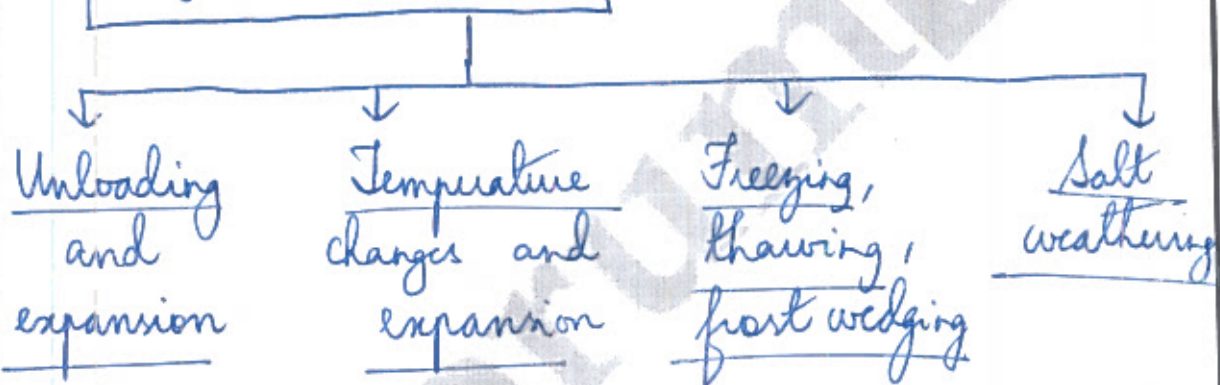 Unloading
and
expansion
Temperature
changes and
expansion
Freezing,
thawing,
frost wedging
Salt
weathering